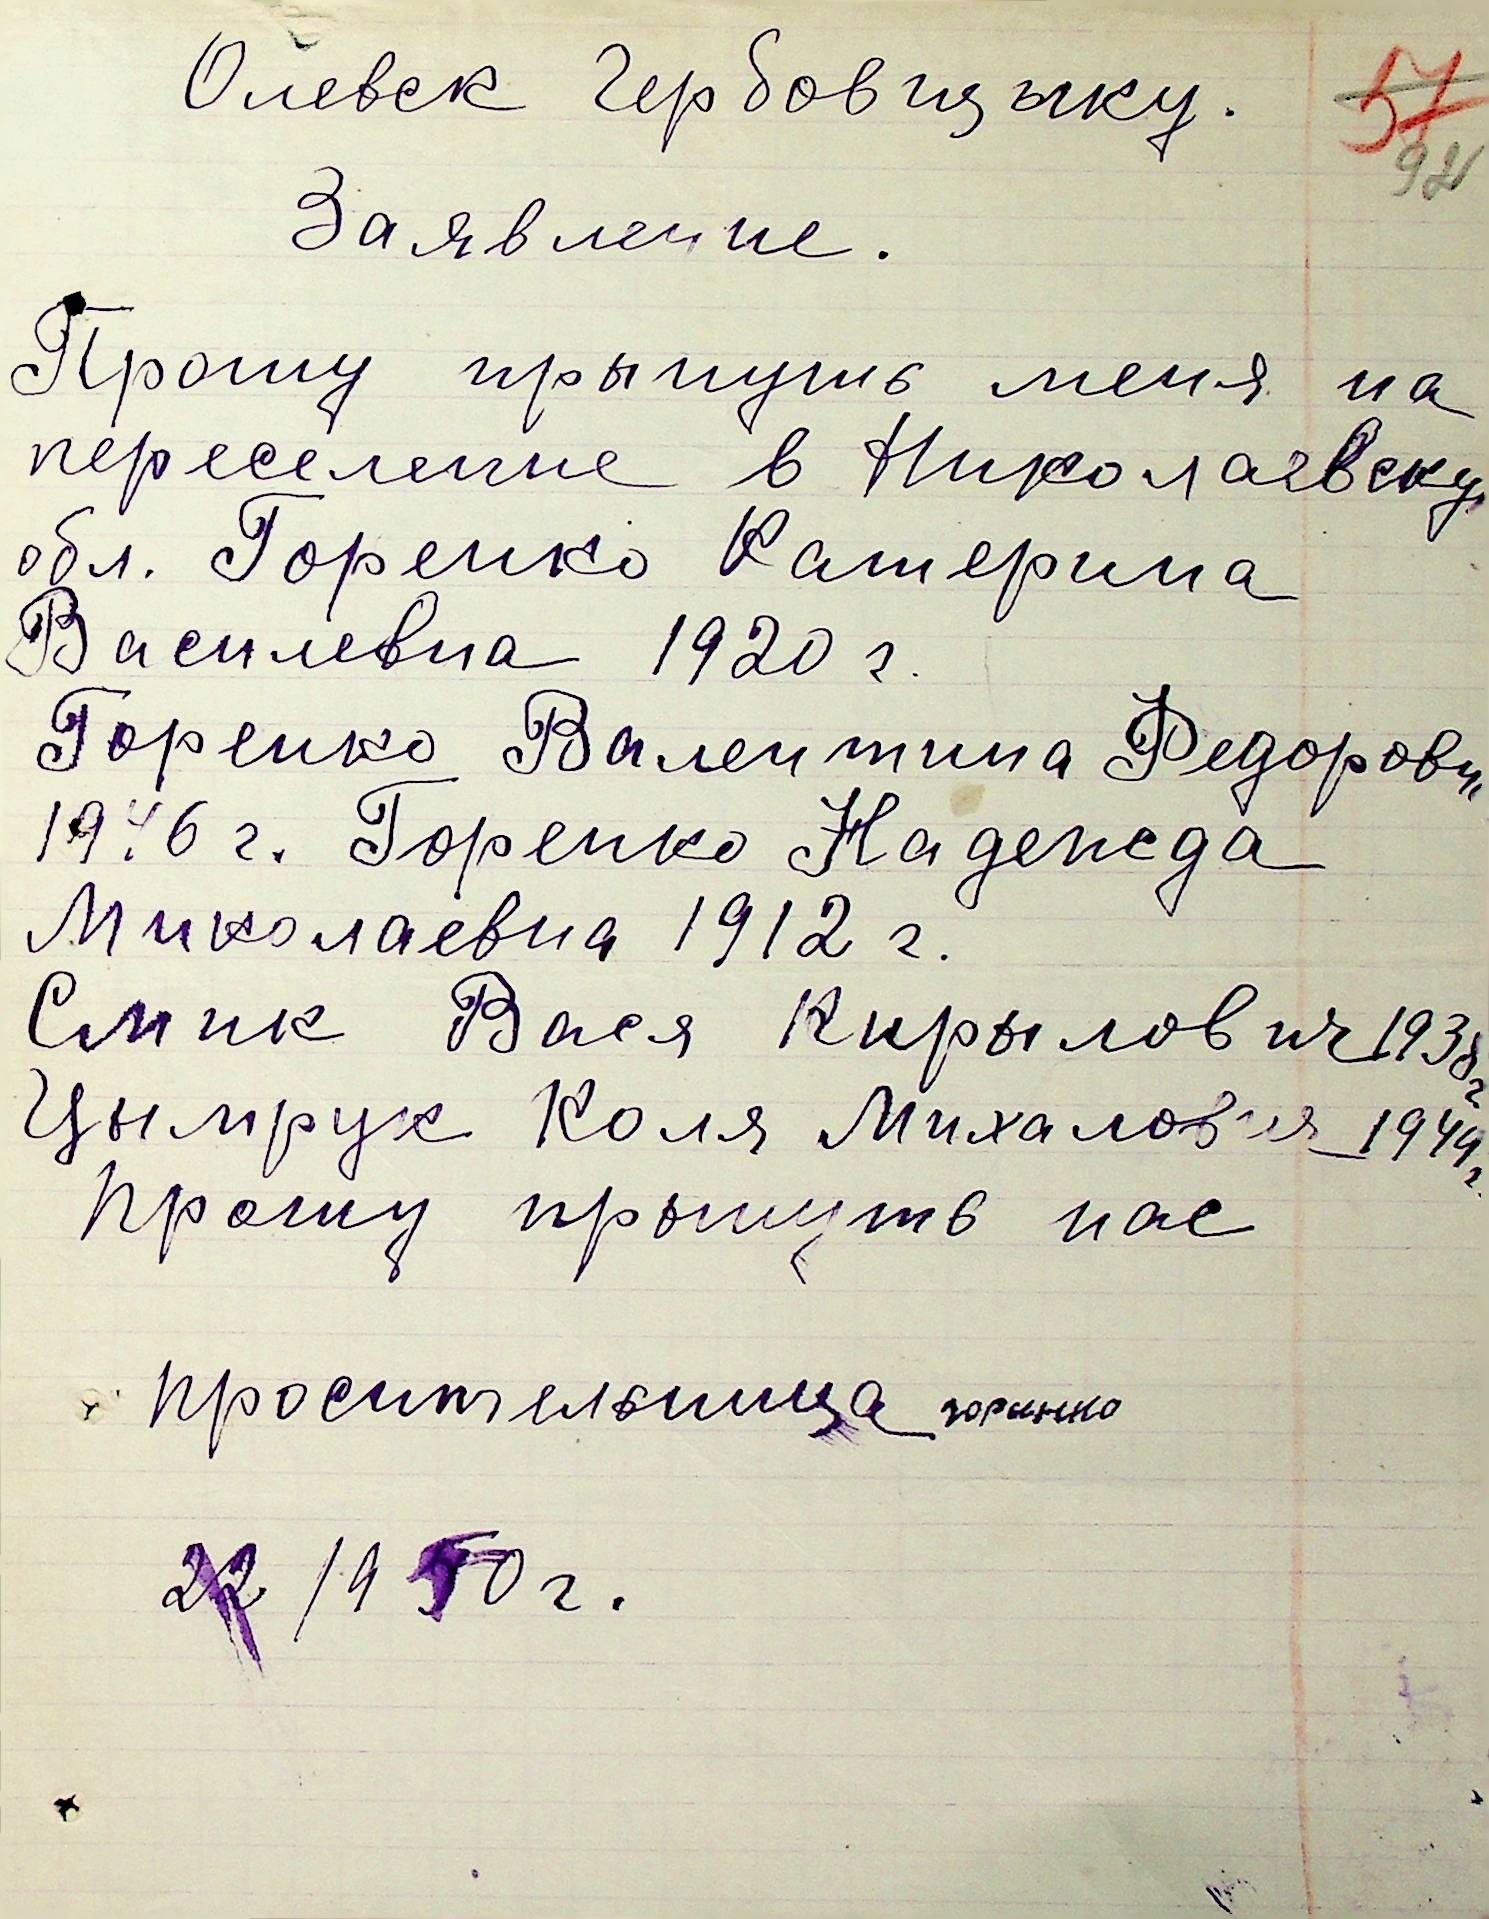 Олевск Гербовщыку.
57
92
Заявление.
Прошу прынуть меня на
переселение в Николаевску
обл. Горенко Катерина
Василевна 1920 г.
Горенко Валентина Федоровн
1946 г. Горенко Надежда
Миколаевна 1912 г.
Смик Вася Кирылович 1938 г
Цымрук Коля Михалович 1944 г.
Прошу прынуть нас
просительница горинко
22 / 1950 г.